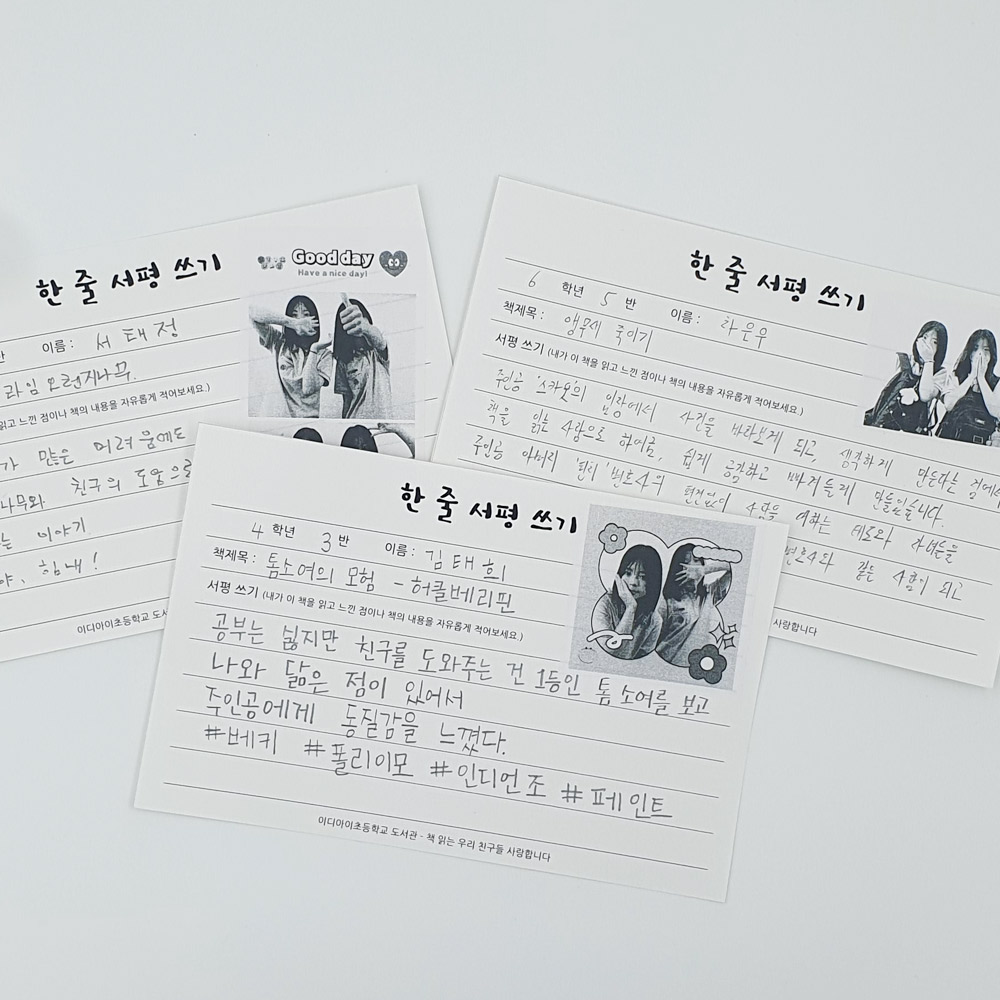 Good day
Have a nice day!
한 줄 서평 쓰기
반 이름 : 서태정
라임 오렌지나무.
읽고 느낀 점이나 책의 내용을 자유롭게 적어보세요.)
가 많은 어려움에도
나무와 친구의 도움으로
는 이야기
야, 힘내!
이디아이초등학교 도서
한 줄 서평 쓰기
6 학년 5 반 이름 : 차은우
책제목 : 앵무새 죽이기
서평 쓰기 (내가 이 책을 읽고 느낀 점이나 책의 내용을 자유롭게 적어보세요.)
주인공 '스카웃'의 입장에서 사건을 바라보게 되고, 생각하게 만든다는 점에서
책을 읽는 사람으로 하여금, 쉽게 공감하고 빠져들게 만들었습니다.
주인공 아버지 '핀치' 변호사의 편견없이 사람을 대하는 태도와
변호사와 같은 사람이 되고
사랑합니다
한 줄 서평 쓰기
4 학년 3 반 이름 : 김태희
책제목 : 톰소여의 모험 - 허클베리핀
서평 쓰기 (내가 이 책을 읽고 느낀 점이나 책의 내용을 자유롭게 적어보세요.)
공부는 싫지만 친구를 도와주는 건 1등인 톰소여를 보고
나와 닮은 점이 있어서
주인공에게 동질감을 느꼈다.
#베키 #폴리이모 #인디언조 #페인트
이디아이초등학교 도서관 - 책 읽는 우리 친구들 사랑합니다